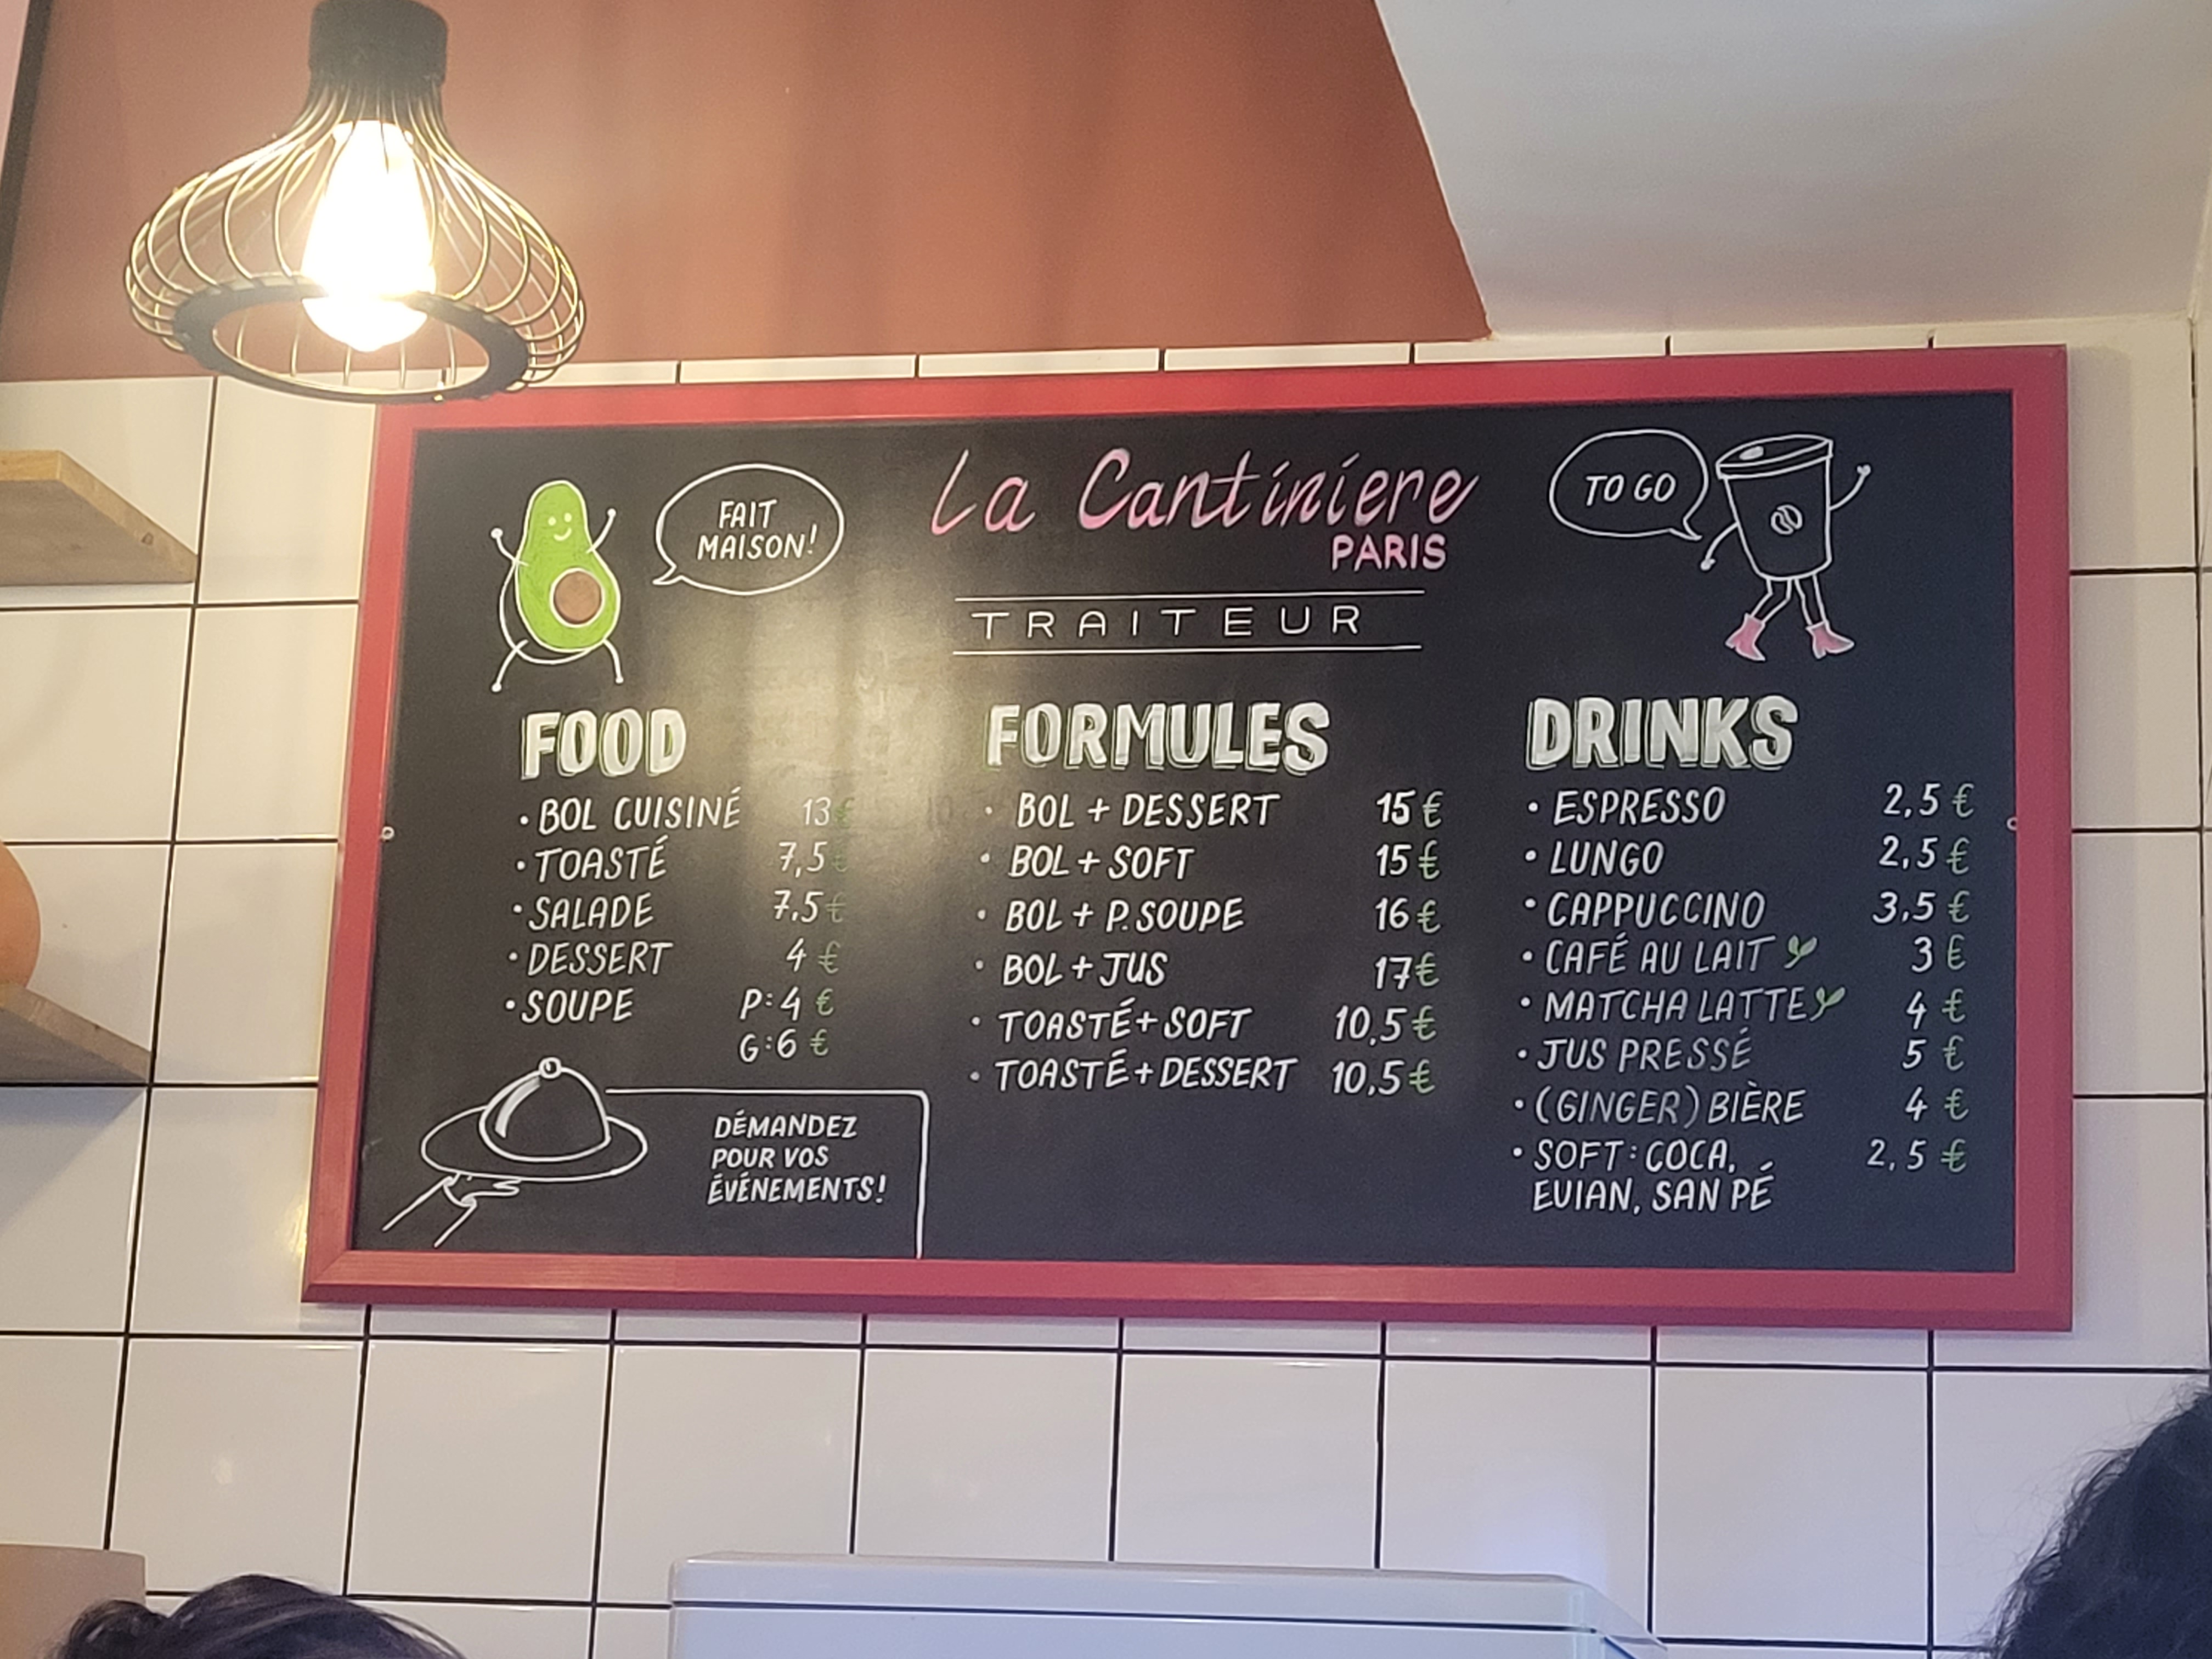 FAIT
MAISON!
La Cantiniere
PARIS
TRAITEUR
TO GO
FOOD
• BOL CUISINÉ 13€
• TOASTÉ 7,5€
• SALADE 7,5€
• DESSERT 4€
• SOUPE P:4€
G:6€
DÉMANDEZ
POUR VOS
ÉVÉNEMENTS!
FORMULES
• BOL + DESSERT 15€
• BOL + SOFT 15€
• BOL + P.SOUPE 16€
• BOL + JUS 17€
• TOASTÉ + SOFT 10,5€
• TOASTÉ + DESSERT 10,5€
DRINKS
• ESPRESSO 2,5€
• LUNGO 2,5€
• CAPPUCCINO 3,5€
• CAFÉ AU LAIT 3€
• MATCHA LATTE 4€
• JUS PRESSÉ 5€
• (GINGER) BIÈRE 4€
• SOFT: COCA, 2,5€
EVIAN, SAN PÉ